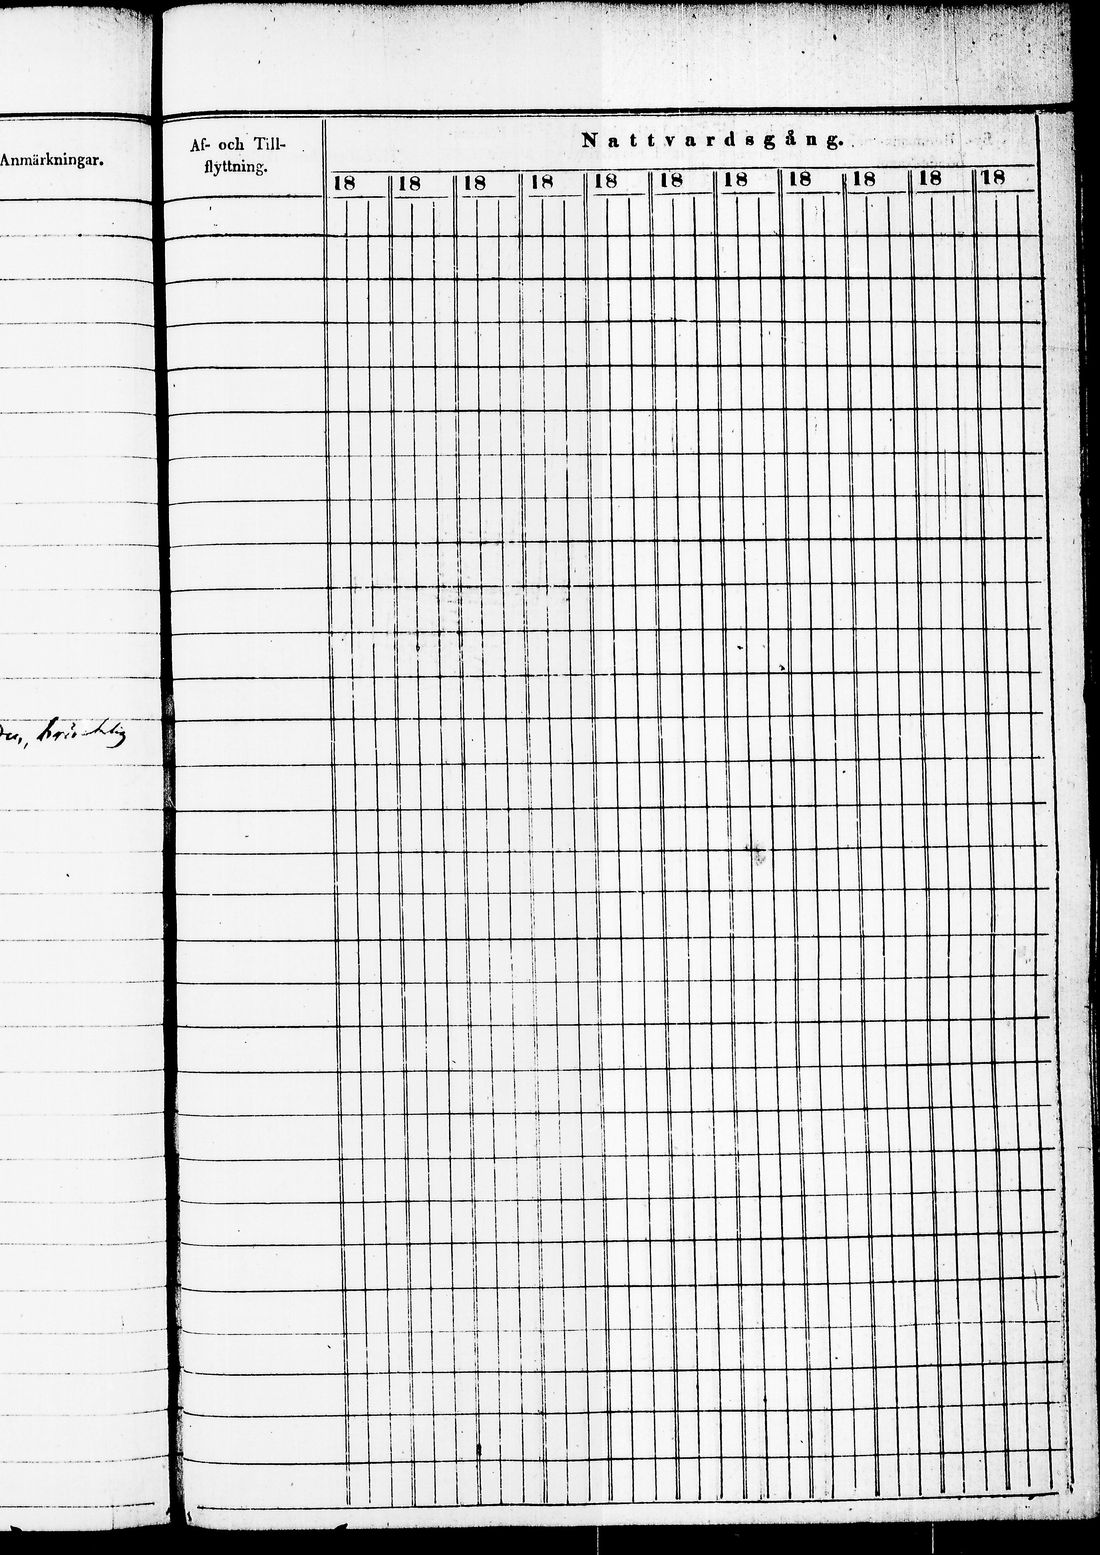 Anmärkningar.
Af- och Till-
flyttning.
Nattvardsgång.
18 18 18 18 18 18 18 18 18 18 18
bräcklig